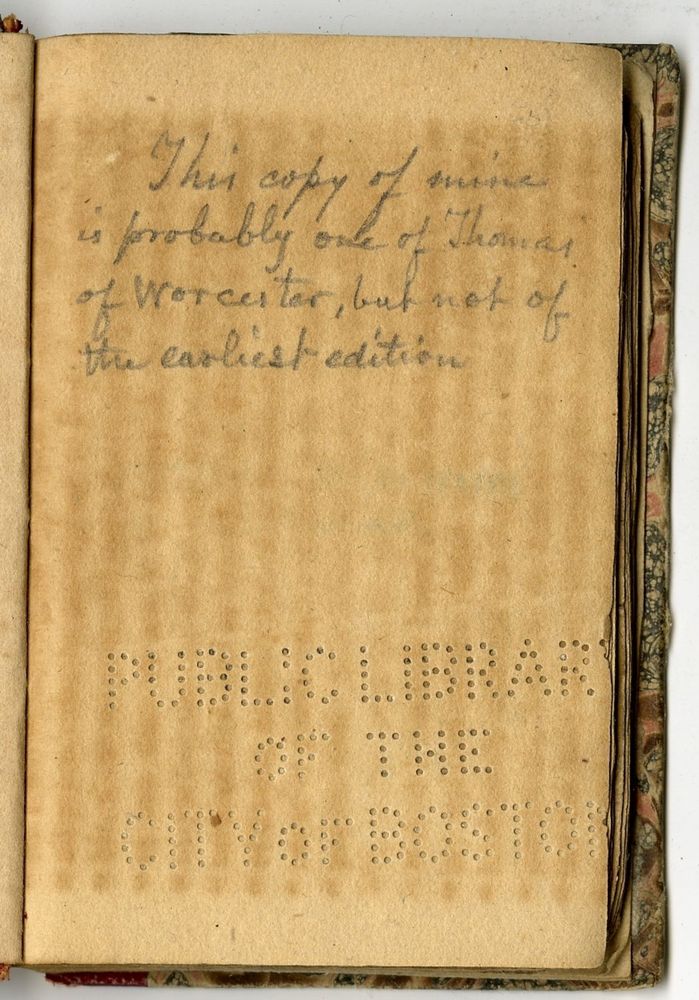 This copy of mine
is probably one of Thomas
of Worcester, but not of
the earliest edition
PUBLIC LIBRARY
OF THE
CITY OF BOSTON